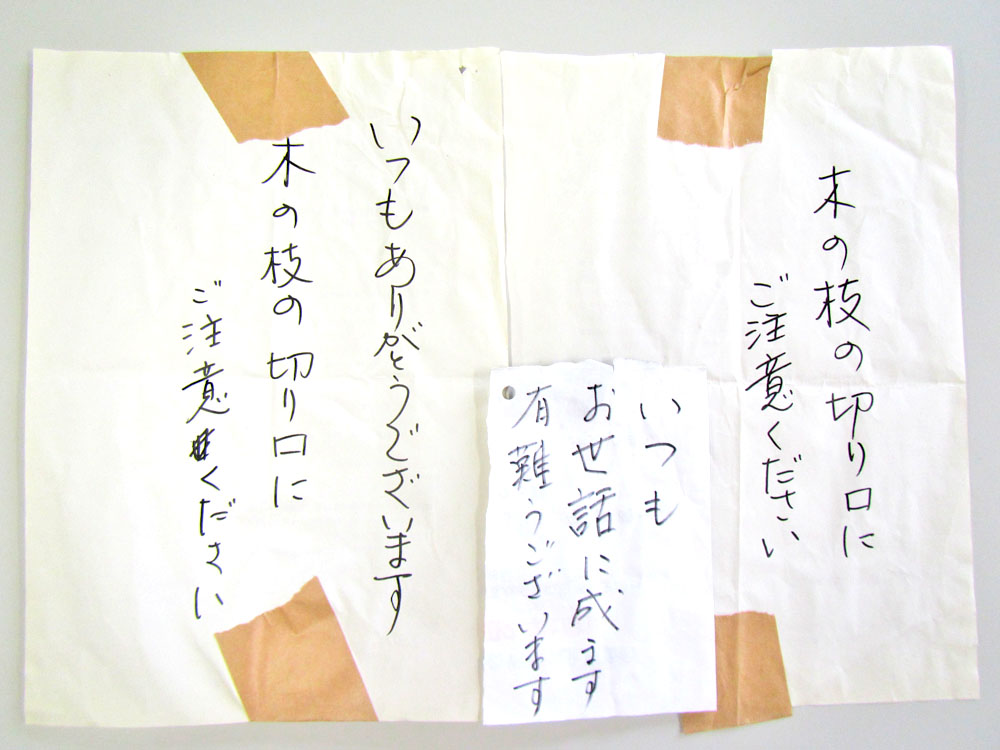 いつもありがとうございます
木の枝の切り口に
ご注意ください
いつも
お世話に成ます
有難うございます
木の枝の切り口に
ご注意ください